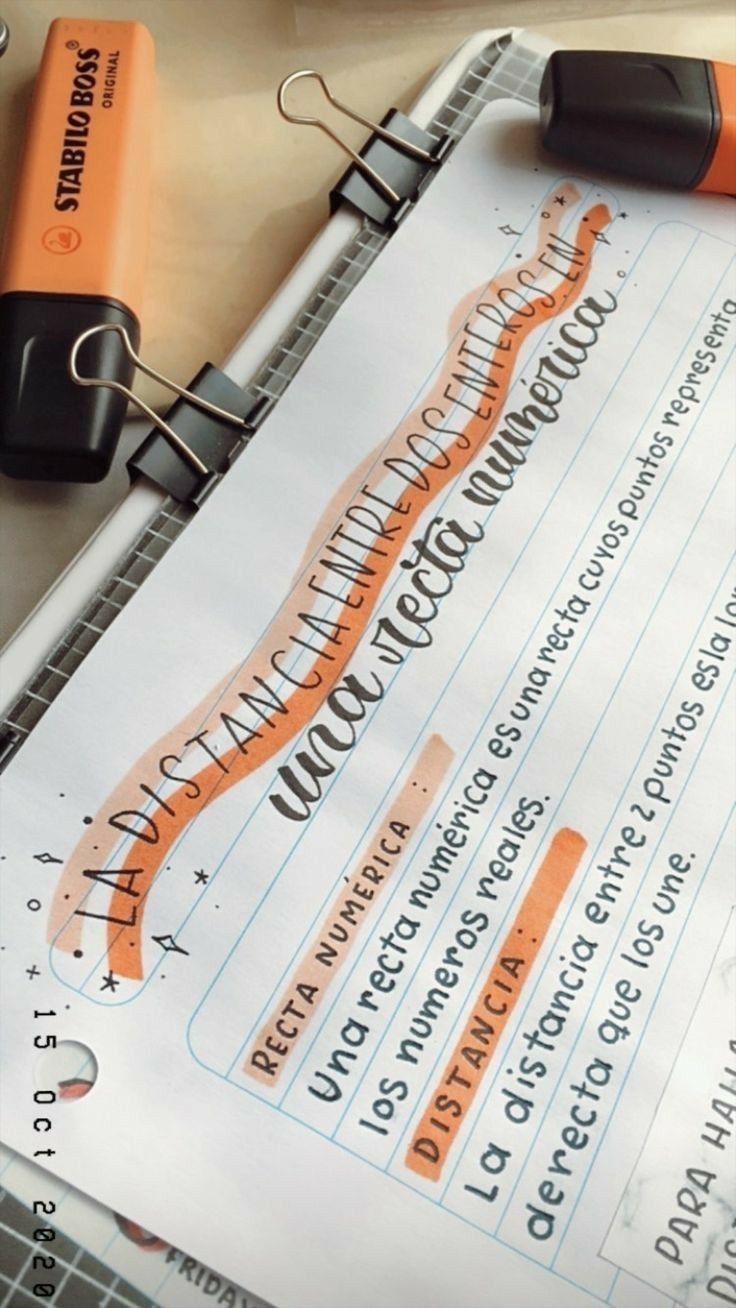 STABILO BOSS®
ORIGINAL
LA DISTANCIA ENTRE DOS ENTEROS EN
una recta numérica
RECTA NUMÉRICA :
Una recta numérica es una recta cuyos puntos representa
los numeros reales.
DISTANCIA :
La distancia entre 2 puntos es la
derecta que los une.
PARA
15 Oct 2020
FRIDAY